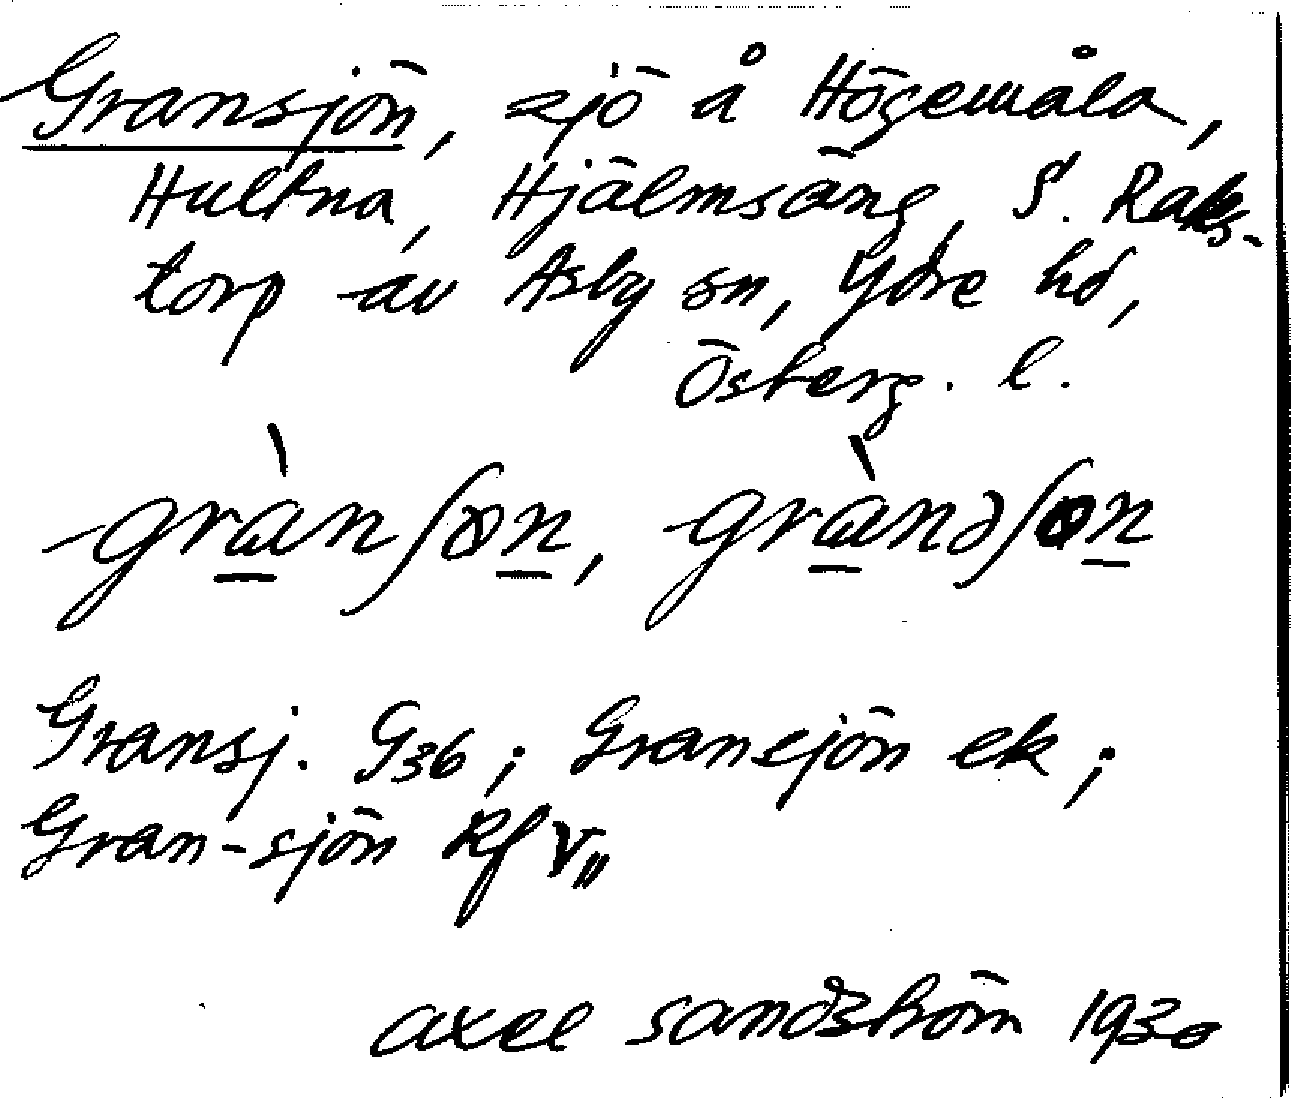 Gransjön, sjö å Högemåla,
Hultna, Hjälmsäng, S. Raks-
torp av Asby sn, Ydre hd,
Österg. l.
grànʃøn, grànəʃøn
Gransj. G36; Gransjön ek;
Gran-sjön Rf V11
axel sandström 1930